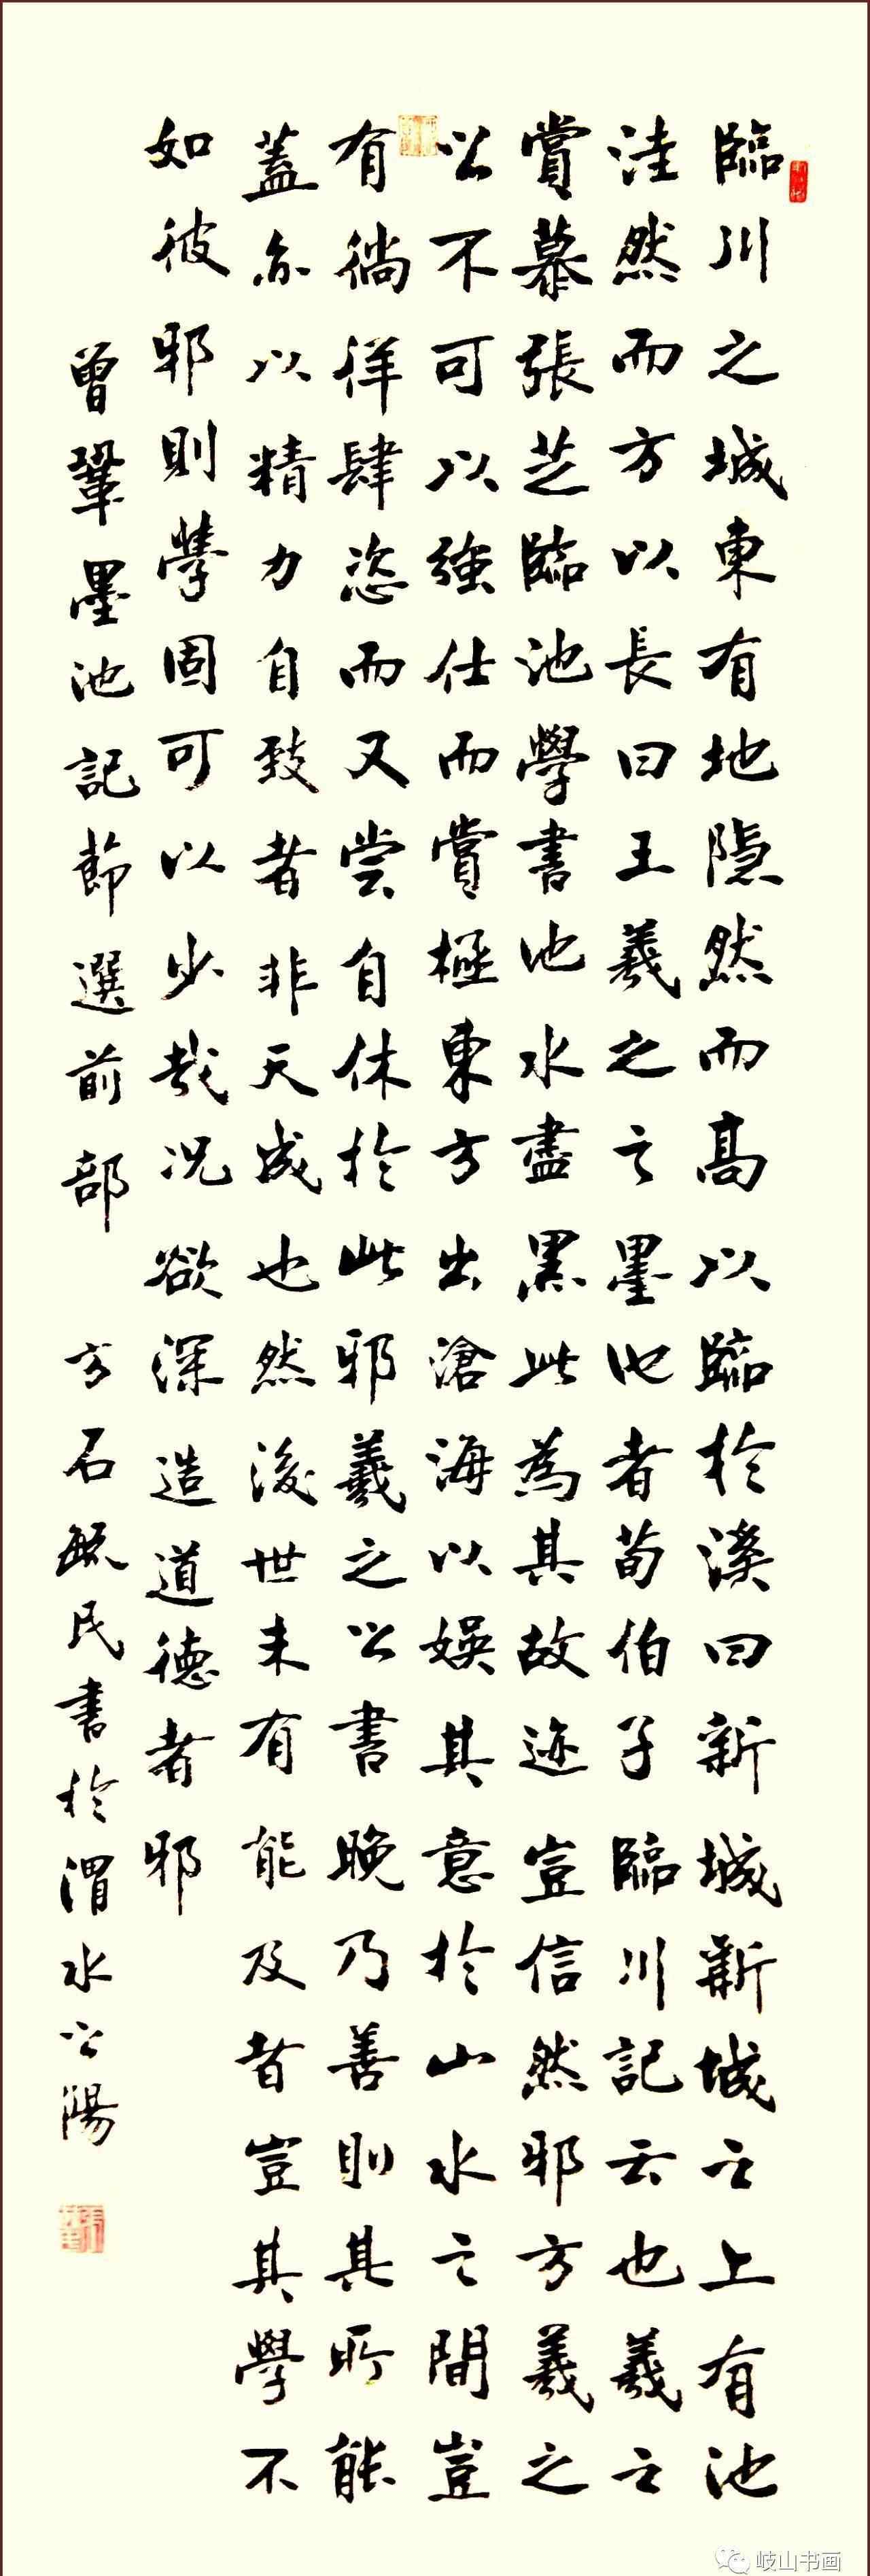 臨川之城東有地隱然而高以臨於溪曰新城新城之上有池
洼然而方以長曰王羲之之墨池者荀伯子臨川記云也羲之
賞慕張芝臨池學書池水盡黑此為其故迹豈信然邪方羲之
之不可以強仕而賞極東方出滄海以娛其意於山水之間豈
有徜徉肆恣而又尝自休於此邪羲之之書晚乃善則其所能
蓋亦以精力自致者非天成也然後世未有能及者豈其學不
如彼邪則學固可以少哉况欲深造道德者邪
曾鞏墨池記節選前部 方石毓民書於渭水之陽
岐山书画